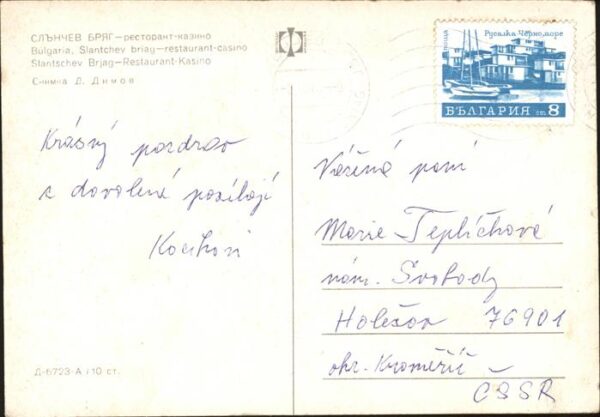 СЛЪНЧЕВ БРЯГ—ресторант-казино
Bulgaria, Slantchev briag—restaurant-casino
Slantschev Brjag—Restaurant-Kasino
Снимка Д. Димов
поща
Русалка Черно море
БЪЛГАРИЯ ст 8
Krásný pozdrav
z dovolené posílají
Vážená paní
Marie Teplíchová
nám. Svobody
Holešov 76901
okr. Kroměříž
ČSSR
Д-6723-А 10 ст.